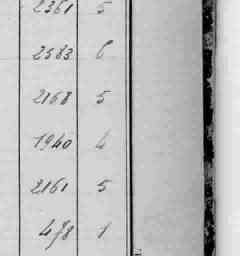 2361 5
2583 6
2168 5
1940 4
2161 5
478 1